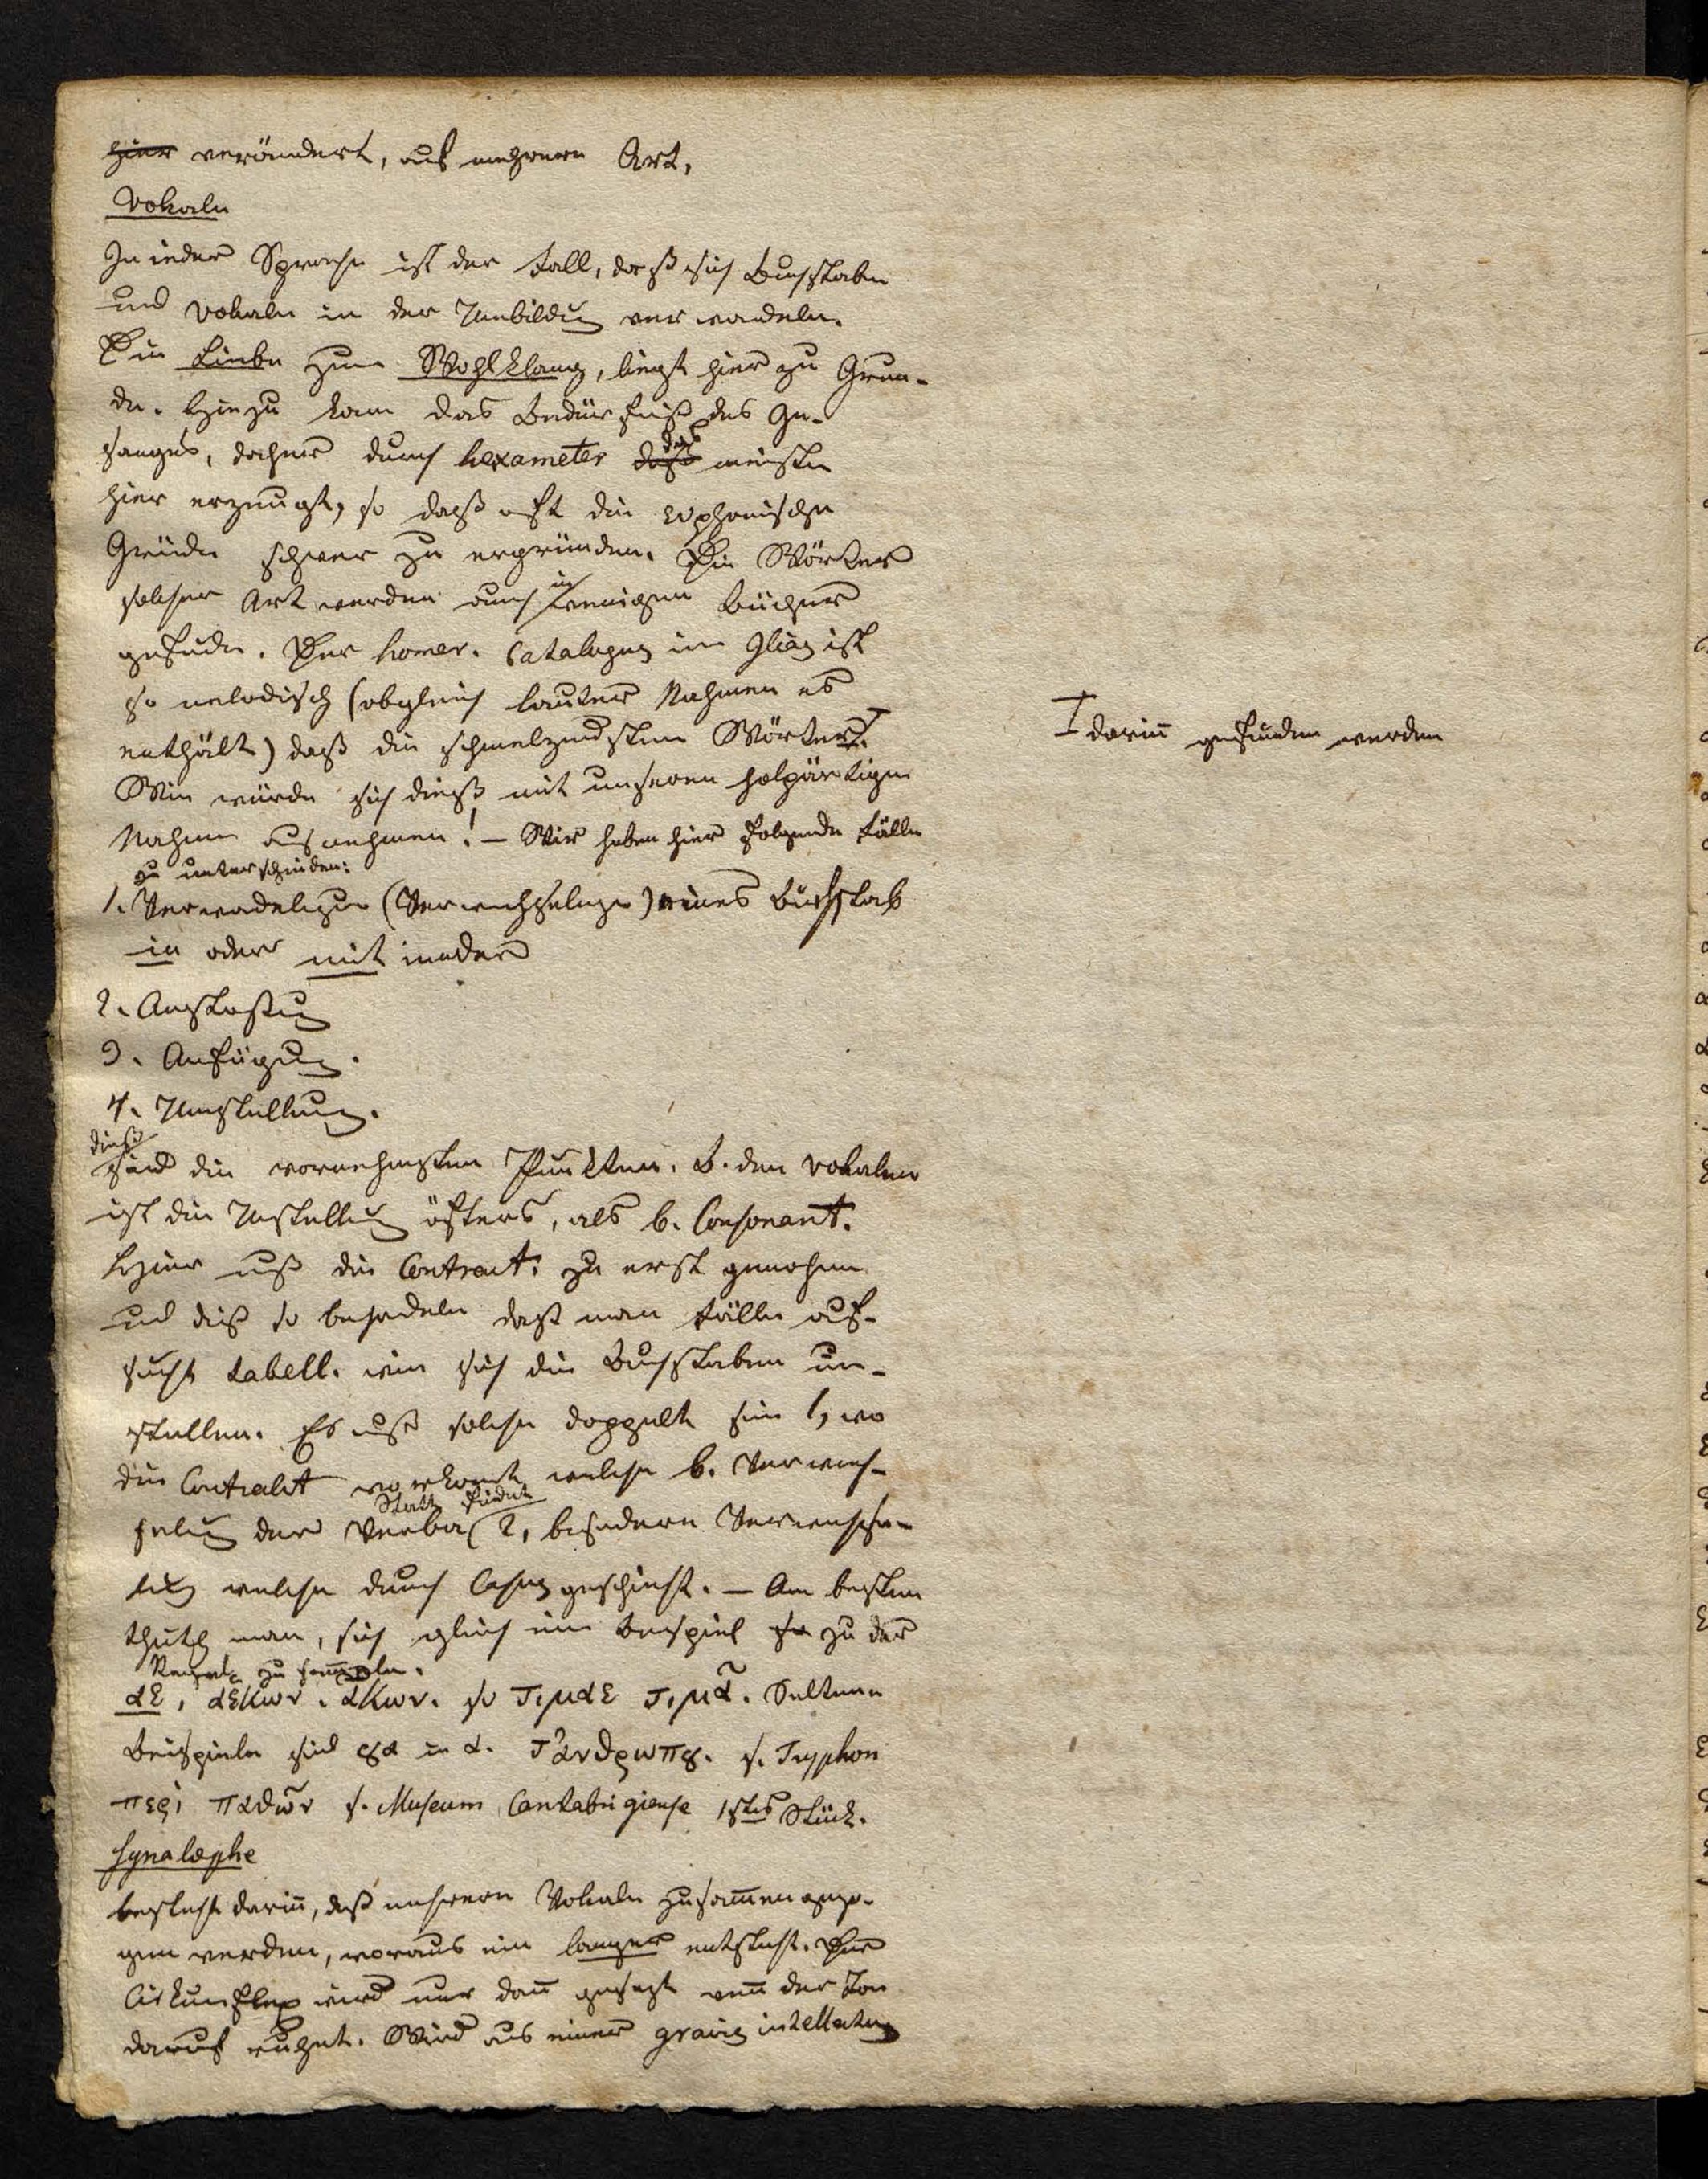 hier verändert, auf mehrere Art,
Vokale
In jeder Sprache ist der Fall, daß sich Buchstaben
und Vokale in der Umbildung verwandeln.
Die Liebe zum Wohlklang, liegt hier zu Grun-
de. Hiezu kam das Bedürfniß des Ge-
sanges, daher durch hexameter daß das meiste
hier erzeugt, so daß oft die euphonischen
Gründe schwer zu ergründen. Die Wörter
solcher Art werden auch in wenigen Bücher
gefunden. Der homer. Catalogus im Ilias ist
so melodisch (obgleich lauter Nahmen es
enthält) daß die schmelzendsten Wörter
darinn gefunden werden
Wie würde sich dieß mit unseren holpärtigen
Nahmen ausnehmen! – Wir haben hier folgende Fälle
zu unterscheiden:
1. Verwandelungen (Verwechselungen) eines Buchstab
in oder mit andern
2. Auslaßung
3. Anfügung.
4. Umstellung.
dieß sind die vornehmsten Punkten. B. den Vokalen
ist die Umstellung öfters, als b. Consonant.
Hier muß die Contract. zu erst genohmen
und dieß so behandeln daß man Fälle auf-
sucht tabell. wie sich die Buchstaben um-
stellen. Es muß solche doppelt sein 1, wo
die Contrakt vorkomt welche b. Verwech-
selung der Verba Statt findet 2, besondere Verwechse-
lung welche durch Casus geschieht. – Am besten
thut man, sich gleich ein Beispiel zu der
Regel zu sam̄eln.
αε, αεκων. ἀκων. so τιμαε τιμᾶ. Seltene
Beispiele sind ȣα in α. τἀνθρωπȣ. s. Tryphon
περὶ παθῶν s. Museum Cantabrigiense 1stes Stück.
Synalœphe
besteht darin̄, daß mehrere Vokale zusam̄engezo-
gen werden, woraus ein langer entsteht. Der
Cirkumflex wird nur dan̄ gesezt wen̄ der Ton
darauf ruhet. Wird aus einer gravis intellectus